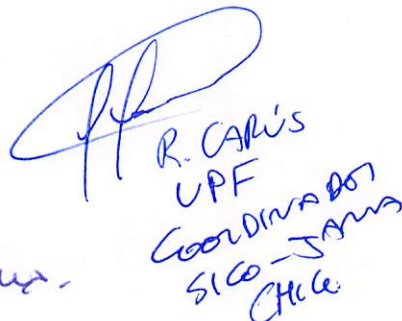 R. CARÚS
UPF
COORDINADOR
SICO-JAMA
CHILE